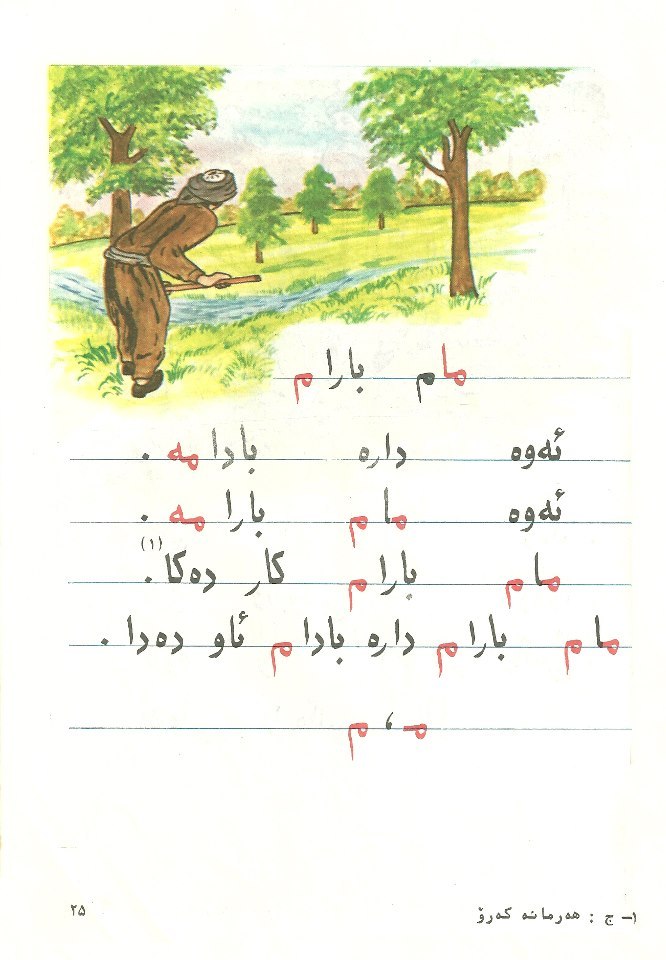 مام بارام
ئەوە دارە بادامە .
ئەوە مام بارامە .
مام بارام کار دەکا(١).
مام بارام دارە بادام ئاو دەدا .
مـ ، م
١– ج : هەرمانە کەرۆ
٢٥